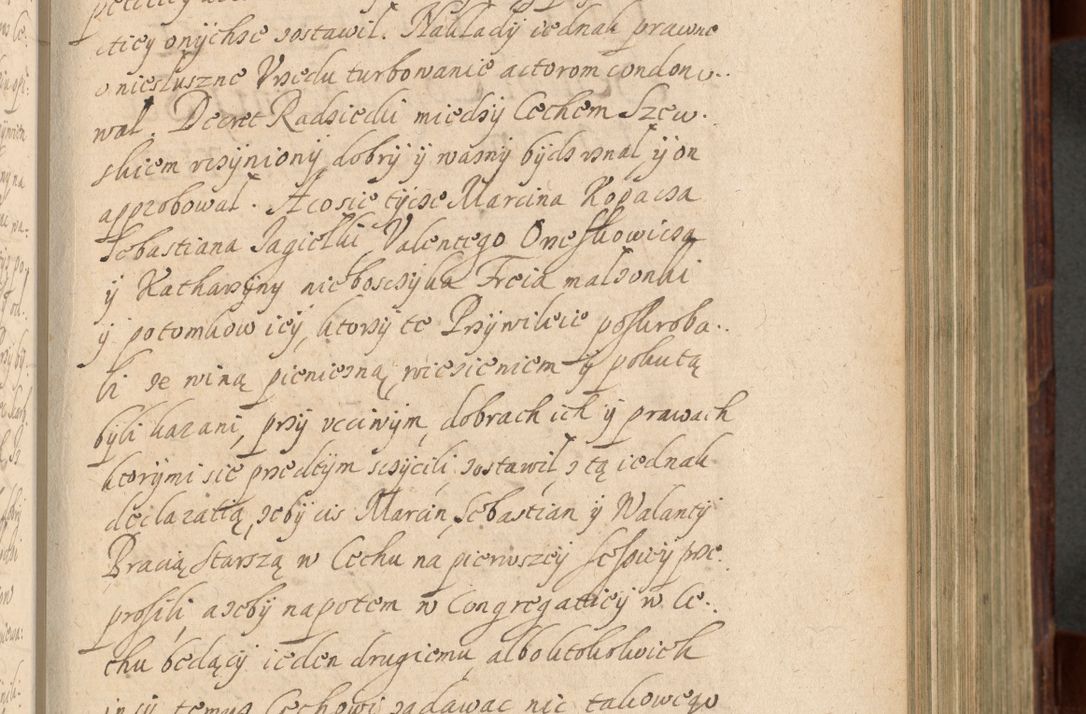 cticy onychże zostawił. Nakłady iednak prawne
o niesłuszne Vrzedu turbowanie actorom condono..
wał. Decret Radziecki między Cechem Szew.
skiem vczyniony, dobry y wazny bydz vznał y on
approbował. A co sie tycze Marcina Kopacza
Sebastiana Jagiełki Valentego Orzeszkowicza
y Katharzyny nieboszczyka Freia małżonki
y potomkow icy, ktorzy te Przywileie poskroba..
li ze winą pienieżną, wiezieniem y pokutą
byli karani, przy vcciwym, dobrach ich y prawach
ktorymi sie przedtym sczycili zostawił, z tą iednak
declaratią, żeby cis Marcin, Sebastian y Walanty
Bracią Starszą w Cechu na pierwszey Sessiey prze
prosili, a żeby napotem w Congregatiey w Ce..
chu będący ieden drugiemu albo ktokolwiek
inszy temuz Cechowi zadawac nic takowego